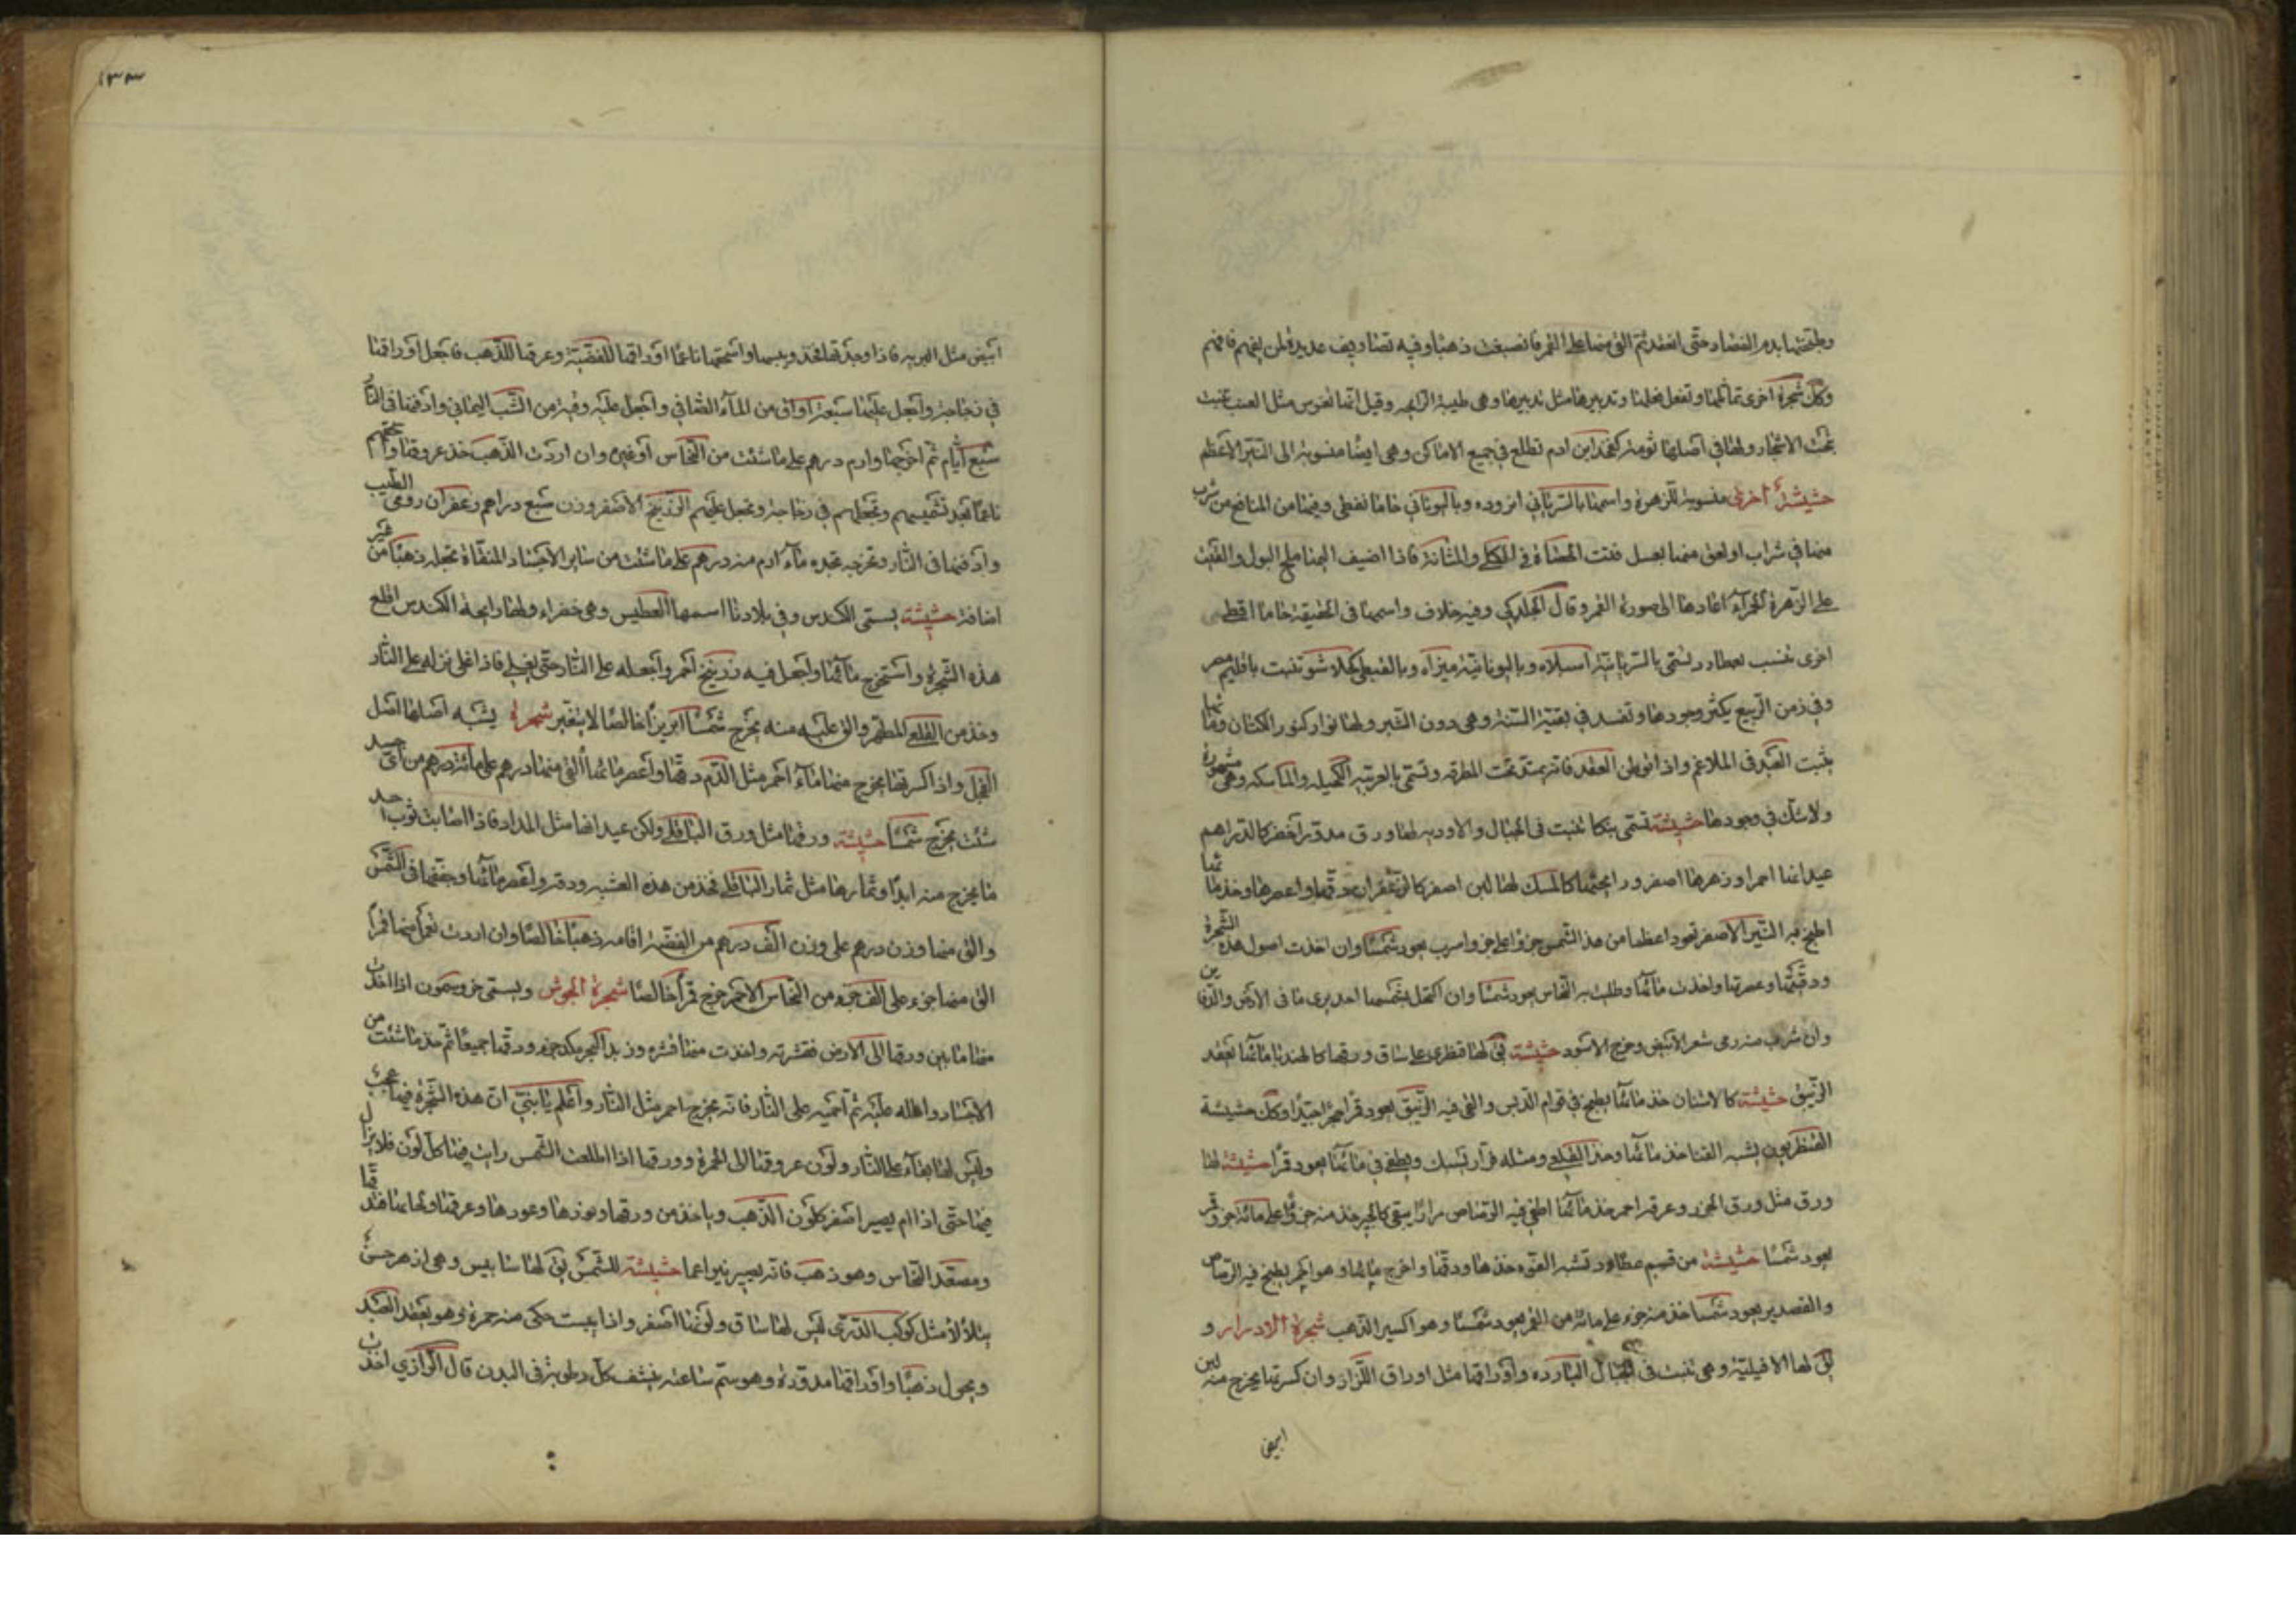 وطبختها بدم الفصاد حتى انعقد ثم القى منها على القمر فانصبغت ذهبا وفيه تصاريف عديدة لمن يفهم فافهم
وكل شجرة اخرى تماثلها وتفعل فعلها وتدبيرها مثل تدبيرها وهى طيبة الرايحه وقيل انها تغرس مثل العنب تنبت
تحت الاشجار ولها فى اصلها ثومة كفخد ابن ادم تطلع فى جميع الاماكن وهى ايضا منسوبة الى النير الاعظم
حشيشة اخرى منسوبة للزهرة واسمها بالسريانى انروده وباليونانى خاما نغطى وفيها من المنافع من شرب
منها فى شراب او لعق منها بعسل فتت الحصاة فى الكلى والمثانة فاذا اضيف اليها ملح البول والقيت
على الزهرة الحمرآء اعادها الى صورة القمر وقال الجلدكى وفيه خلاف واسمها فى الحقيقة خاما اقطى
اخرى تنسب لعطارد تسمى بالسريانية اسلاه وباليونانية ميزاه وبالقبطى كلاشو تنبت باقليم مصر
وفى زمن الربيع يكثر وجودها وتفسد فى بقية السنة وهى دون الشبر ولها نوار كنور الكتان ومآئها
يثبت العبد فى الملاغم واذا توطن العقد فانه يمتد تحت المطرقه وتسمى بالعربيه الكحيله والماسكه وهى مشهورة
ولا شك فى وجودها حشيشة تسمى بنكا تنبت فى الجبال والاوديه لها ورق مدور اخضر كالدراهم
عيدانها احمر وزهرها اصفر ورايحتها كالمسك لها لبن اصفر كالزعفران دقها واعصرها وخذ مآئها
اطبخ فيه النير الاصفر تعود اعظما من هذا الشمس جزؤا على جزو اسرب يعود شمسا وان اخذت اصول هذه الشجرة
ودقيتها وعصرتها واخذت مائها وطليت به النحاس يعود شمسا وان اكتحل بشمسها احد يرى ما فى الارض والذى
وان شرب منه رمى شعر الابيض وخرج الاسود حشيشة لها قطرى على ساق ورقها كالهندبا مائها يعقد
الزيبق حشيشة كالاشنان خذ مائها يطبخ فى قوام الدبس والقى فيه الزيبق يعود قمرا حجرا جيدا وكل حشيشة
القنطريون يشبه القنا خذ مائها وخذ القلعى ومثله مرار تسبك ويطفى فى مائها يعود قمرا حشيشة لها
ورق مثل ورق الجزر وعرقه احمر خذ مائها اطفى فيه الرصاص مرارا يبقى كالجير خذ منه جزؤا على مائة جزو قمر
يعود شمسا حشيشة من قسم عطارد تشبه الفوه خذها ودقها واخرج مايها وهو احمر يطبخ فيه الرصاص
والقصدير يعود شمسا خذ منه جزء على مائة من القمر يعود شمسا وهو اكسير الذهب شجرة الادرار و
لها الافيلية وهى تنبت فى الجبال البارده واوراقها مثل اوراق اللزاز وان كسرتها يخرج منه لبن
ابيض
١٣٣
ابيض مثل البريه فاذا وجدتها فخذ ويبسها واسحقها ناعما اوراقها للفضية وعرقها للذهب فاجعل اوراقها
فى زجاجة واجعل عليها سبعة اواق من المآء الصافى واجعل عليه وقية من الشب اليمانى وادفنها فى النار
سبع ايام ثم اخرجها وارم درهم على ما شئت من النحاس او غيره وان اردت الذهب خذ عروقها واسحقهم
ناعما بعد تشميسهم وتجعلهم فى زجاجة وتجعل عليهم الزرنيخ الاصفر وزن سبع دراهم وزعفران رومى الطيب
وادفنها فى النار وتخرجه تجده مآء ارم منه درهم على ما شئت من ساير الاجساد المنقاة تجعله ذهبا من غير
اضافة حشيشة يسمى الكندس وفى بلادنا اسمها العطيس وهى خضراء ولها رايحة الكندس اقلع
هذه الشجرة واستخرج مائها واجعل فيه زرنيخ احمر واجعله على النار حتى يغلى فاذا غلى نزله على النار
وخذ من القلعى المطهر والق عليه منه يخرج شمسا ابريزا خالصا لا يتغير شجرة يشبه اصلها اصل
الفجل واذا كسرتها يخرج منها مآء احمر مثل الدم دقها واعصر مائها القى منها درهم على مائة درهم من اى جسد
شئت يخرج شمسا حشيشة ورقها مثل ورق الباقلى ولكن عيدانها مثل المداد فاذا اصابت ثوب احد
ما يخرج منه ابدا وثمارها مثل ثمار الباقلى فخذ من هذه العشبه ودقه واعصر مائها وجففها فى الشمس
والقى منها وزن درهم على وزن الف درهم من الفضة اقامه ذهبا خالصا وان اردت تعمل منها قمرا
القى منها جزء على الف جزء من النحاس الاحمر خرج قمرا خالصا شجرة الجوش ويسمى خروسمون اذا اخذت
منها ما بين ورقها الى الارض فقشرته واخذت منها قشره وزبد البحر يكد جزء ودقها جميعا ثم خذ ما شئت من
الاجساد واطله عليه ثم احميه على النار فانه يخرج احمر مثل النار واعلم يا بنى ان هذه الشجرة فيها عجب
وليس لها بقاء على النار ولون عروقها الى الحمرة وورقها اذا اطلعت الشمس رايت فيها كل لون فلا يزال
فيها حتى اذا ام يصير اصفر كلون الذهب وياخذ من ورقها ونورها وعودها وعرقها
ومصعد النحاس وهو ذهب فانه يصير نيرا عما حشيشة للشمس لها سنابيس وهى ازهر حسن
يتلألأ مثل كوكب الدرى ليس لها ساق ولونها اصفر واذا يبست حكى منه حمرة وهو يعقد العبد
ويحول ذهبا واوراقها مدورة وهو سم ساعة ينشف كل رطوبة فى البدن قال الرازى اخذت